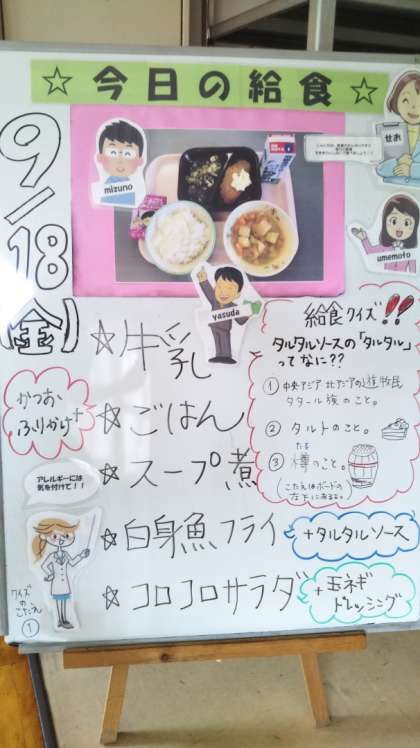 ☆今日の給食☆
9/18(金)
mizuno
せお
umemoto
yasuda
☆牛乳
かつお
ふりかけ+
☆ごはん
☆スープ煮
☆白身魚フライ
+タルタルソース
☆コロコロサラダ
+玉ネギ
ドレッシング
給食クイズ!!
タルタルソースの「タルタル」
ってなに??
① 中央アジア 北アジアの遊牧民
タタール族のこと。
② タルトのこと。
③ 樽のこと。
たる
(こたえはボードの
左下にあるよ。)
アレルギーには
気を付けて!!
クイズ
のこたえ
①